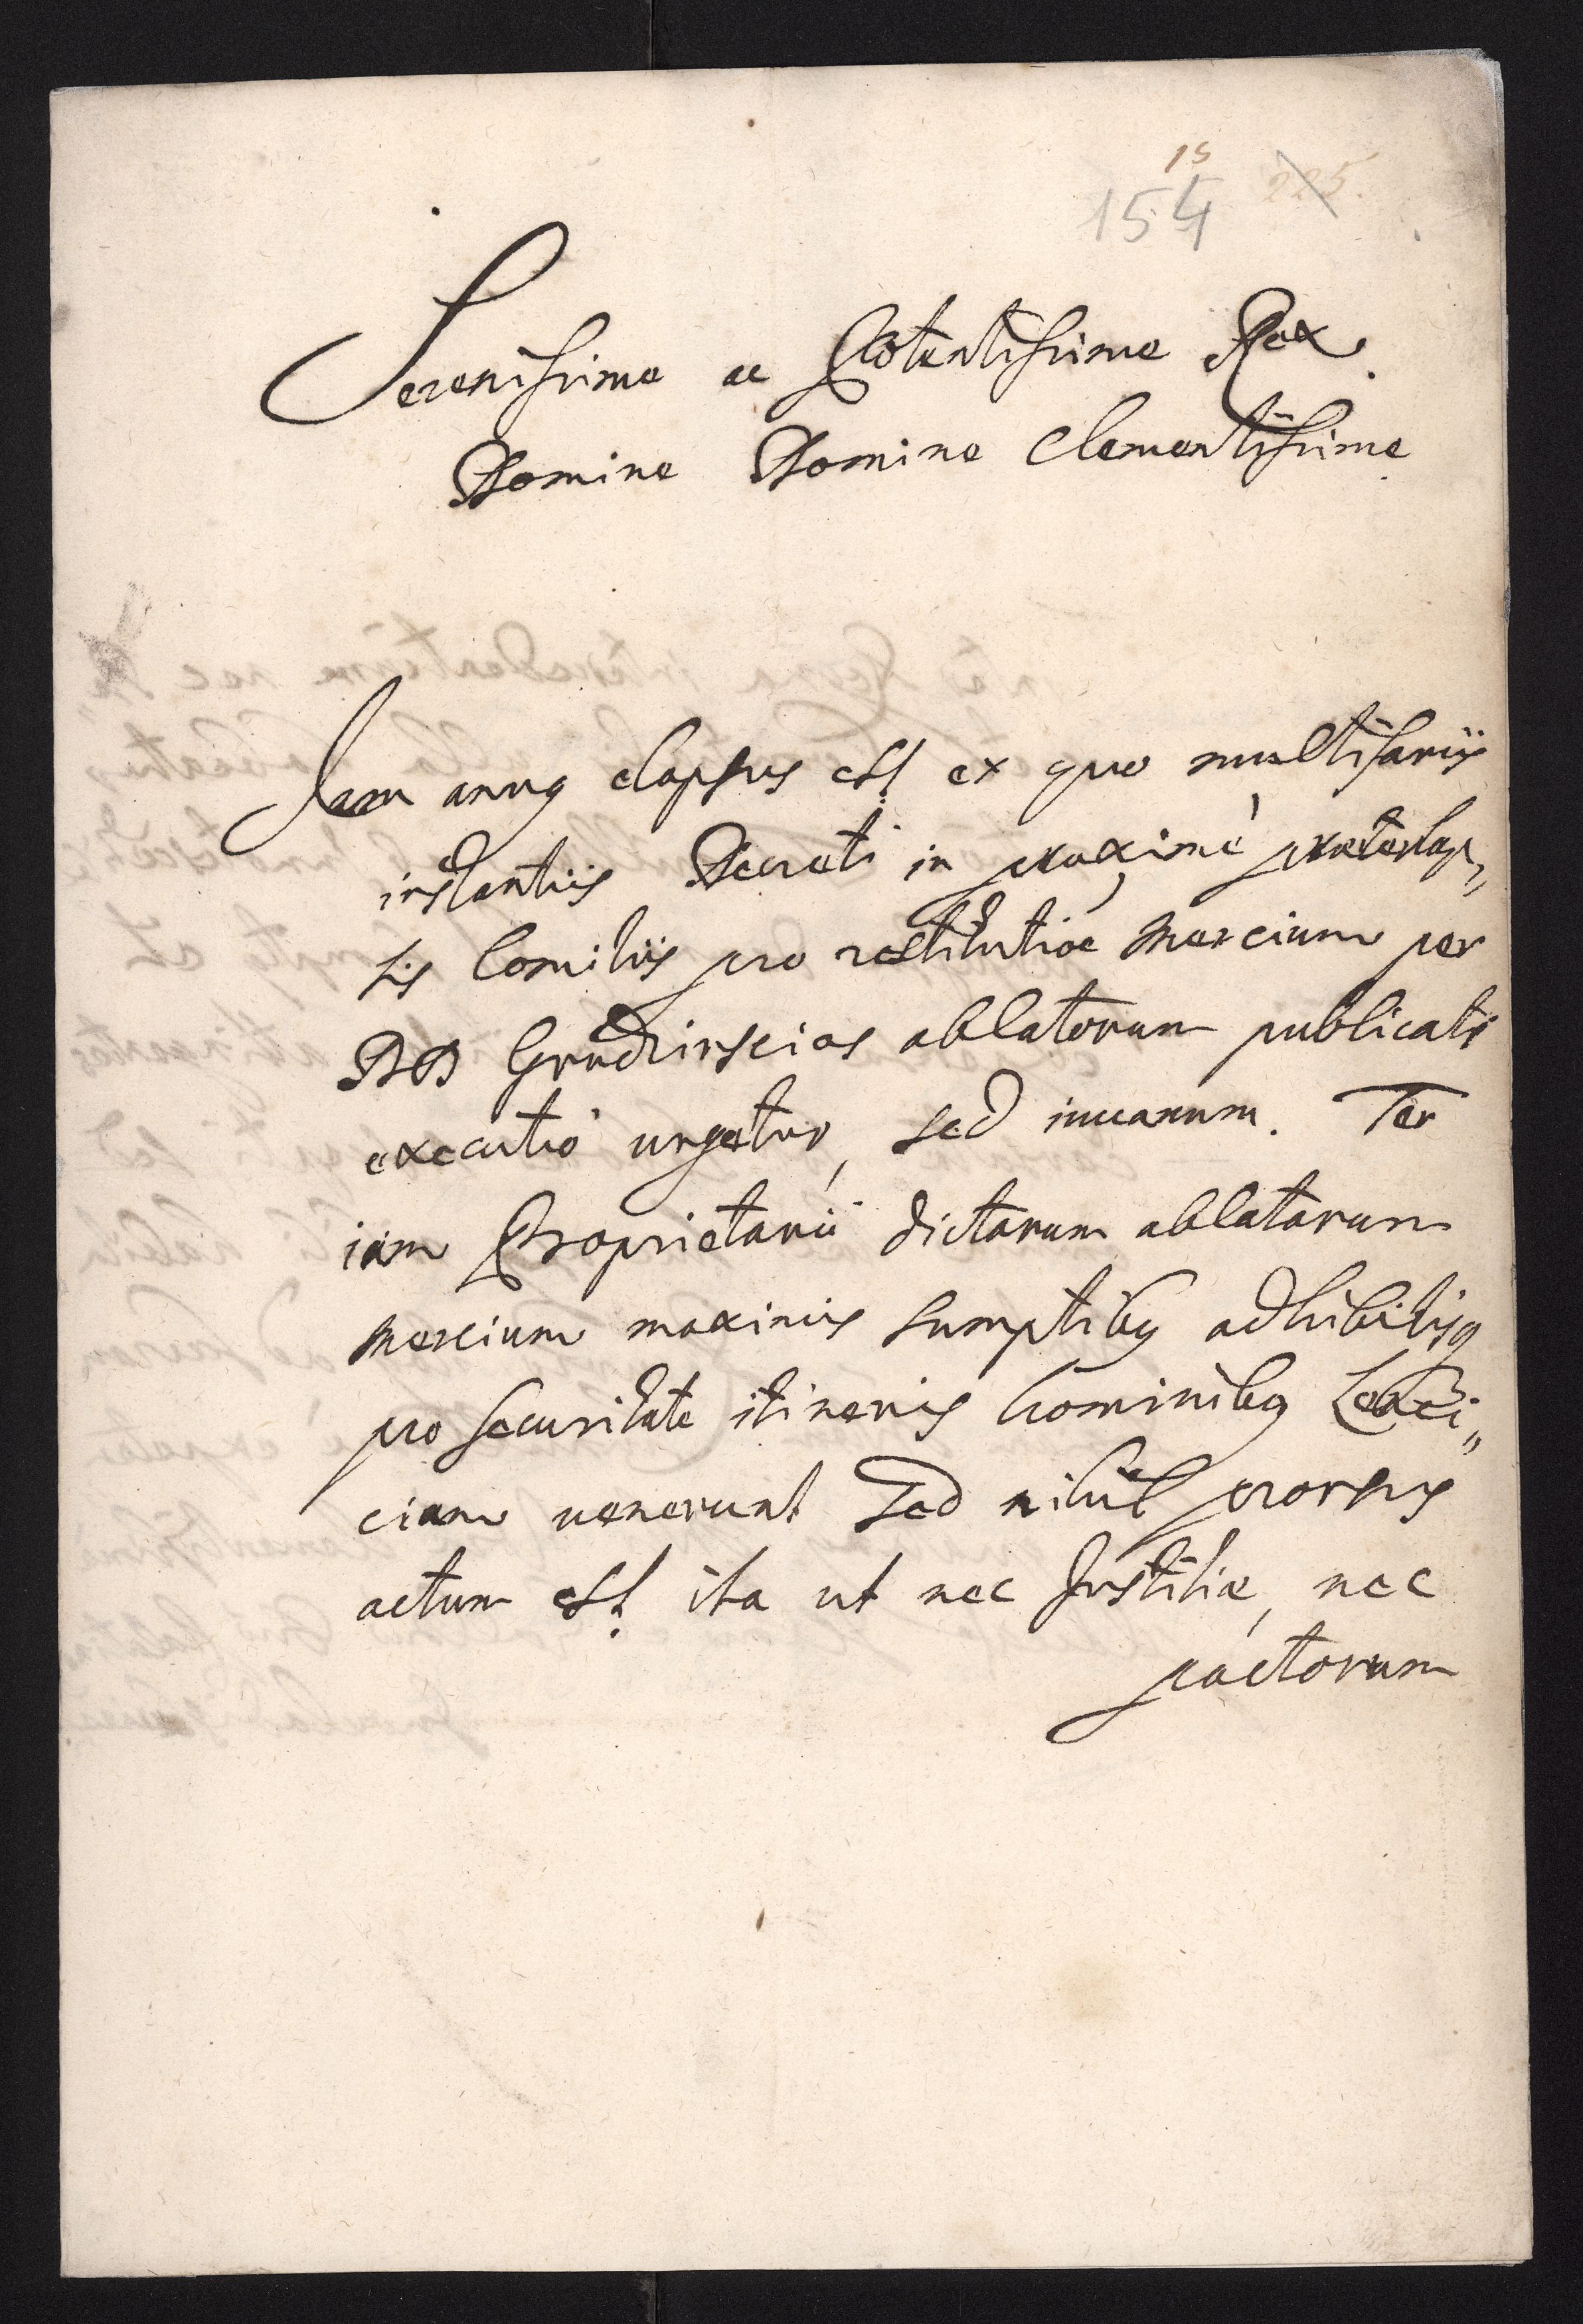 15
154 225.
Serenissime ac Potentissime Rex.
Domine Domine Clementissime
Jam annus elapsus est ex quo multifariis
instantiis Decreti in proximè præterlap„
sis Comitiis pro restitutioe mercium per
DD Grudzinscios ablatorum publicati
executio urgetur, sed inuanum. Ter
iam Proprietarii dictarum ablatarum
mercium maximis sumptibus adhibitisq
pro securitate itineris hominibus
ciam uenerunt sed nihil prorsus
actum est, ita ut nec Justitiæ, nec
pactorum